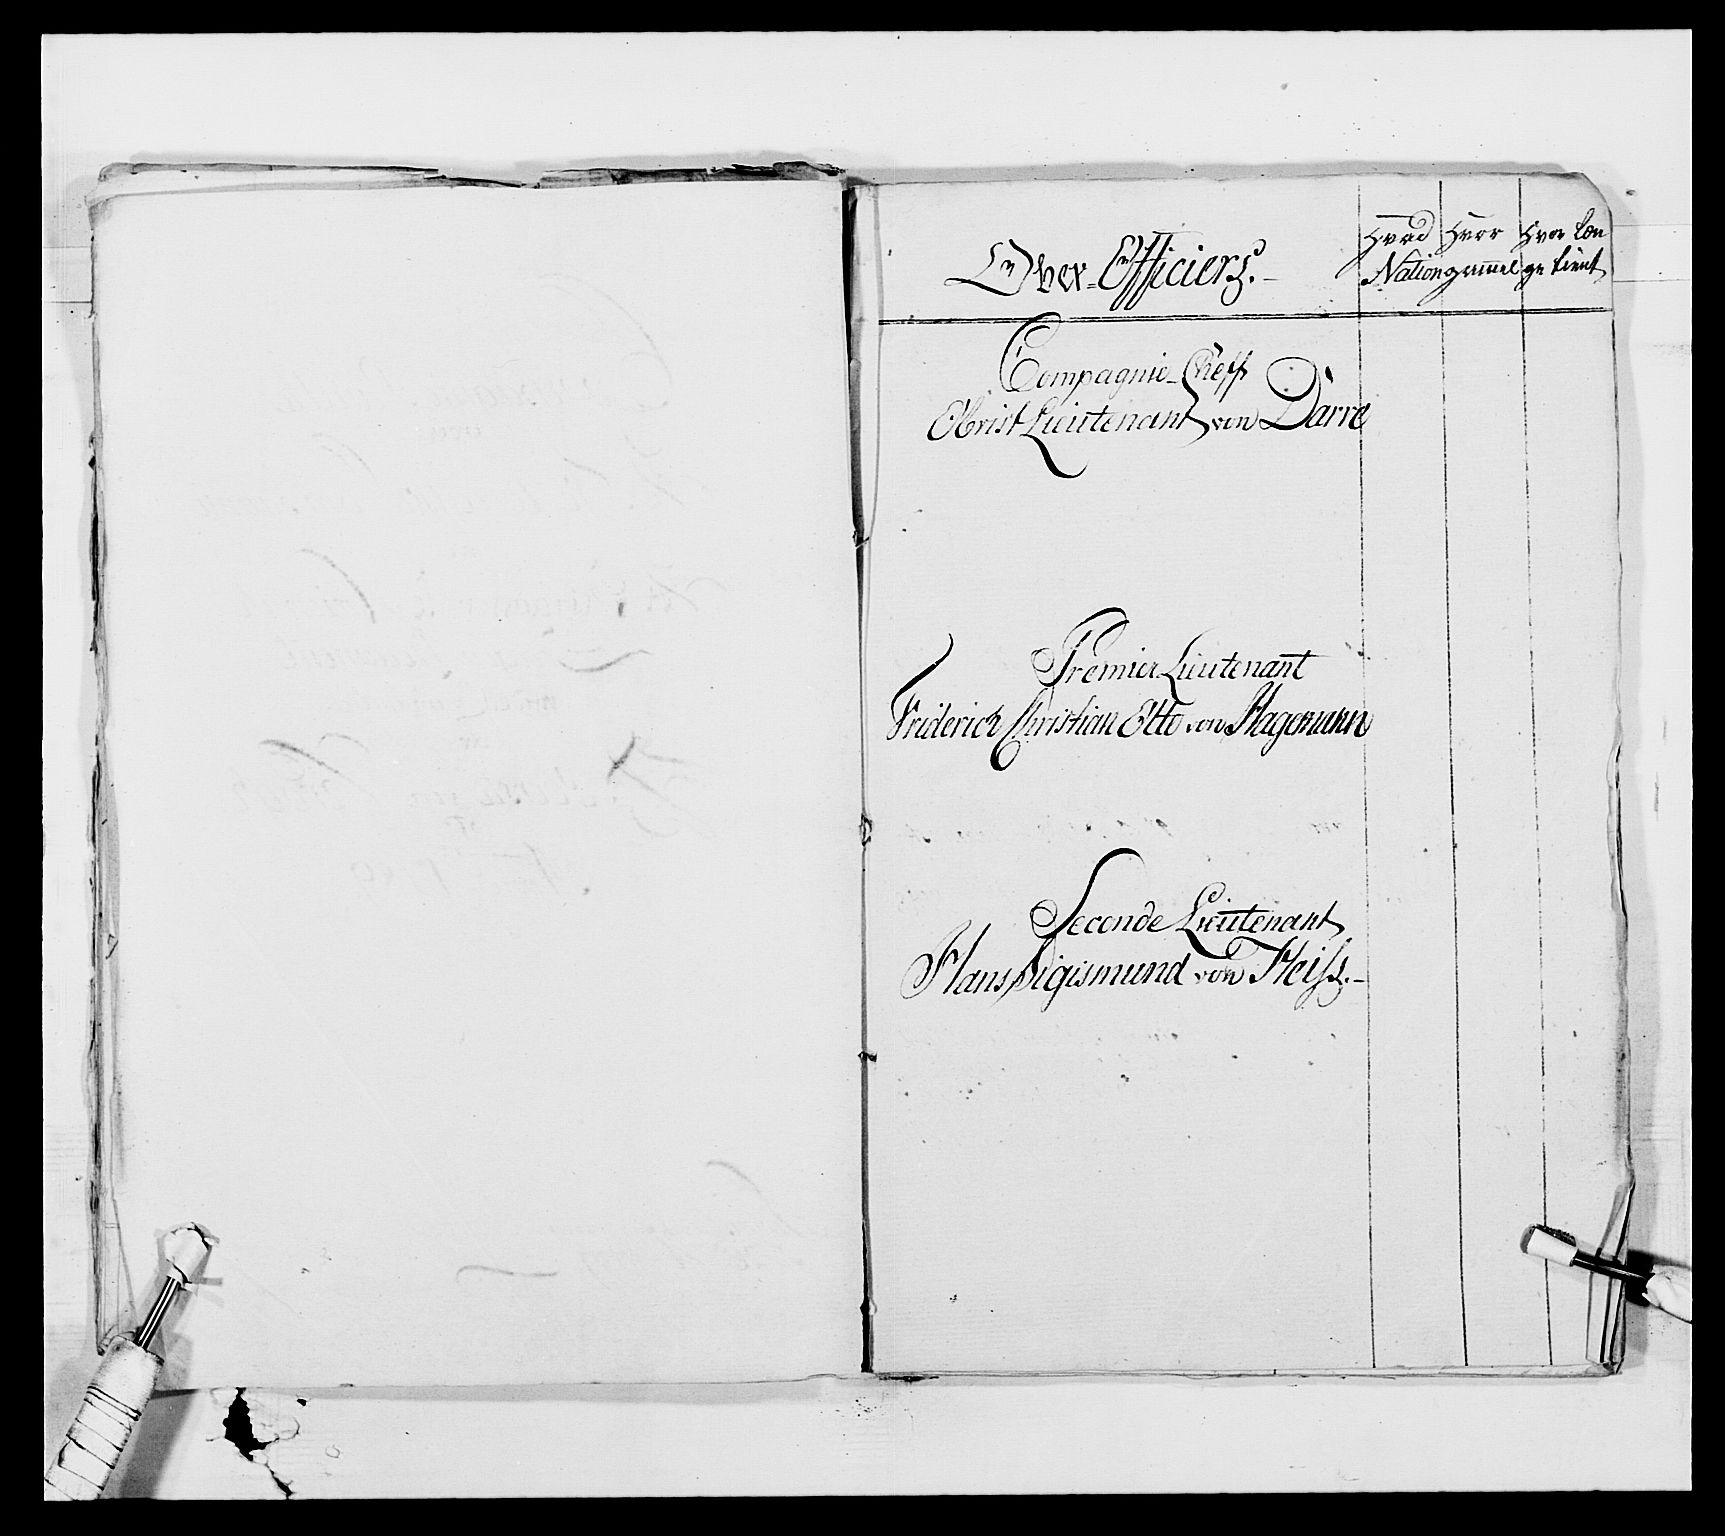 Over-Officiers.
Hvad Nation
Hvor gammel
Hvor længe tient
Compagnie-Cheff
Obrist Lieutenant von Darre
Premier Lieutenant
Friderich Christian Otto von Hagemann
Seconde Lieutenant
Hans Sigismund von Heiss.